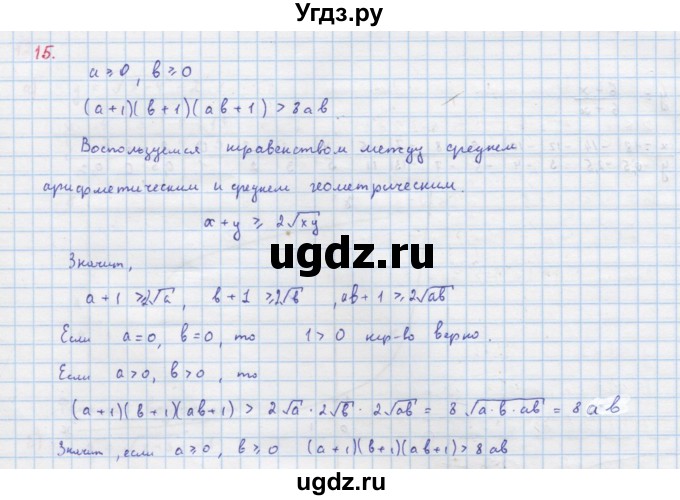 Угдз.ру
15.
a ⩾ 0, b ⩾ 0
(a+1)(b+1)(ab+1) > 8ab.
Воспользуемся неравенством между средним
арифметическим и среднем геометрическим.
x + y ⩾ 2√xy
ugdz.ru
Значит,
a + 1 ⩾ 2√a, b + 1 ⩾ 2√b, ab + 1 ⩾ 2√ab
Если a = 0, b = 0, то 1 > 0 нер-во верно.
Если a > 0, b > 0, то
(a+1)(b+1)(ab+1) > 2√a · 2√b · 2√ab = 8√a·b·ab = 8ab
Значит, если a ⩾ 0, b ⩾ 0 (a+1)(b+1)(ab+1) > 8ab
ugdz.ru
ugdz.ru